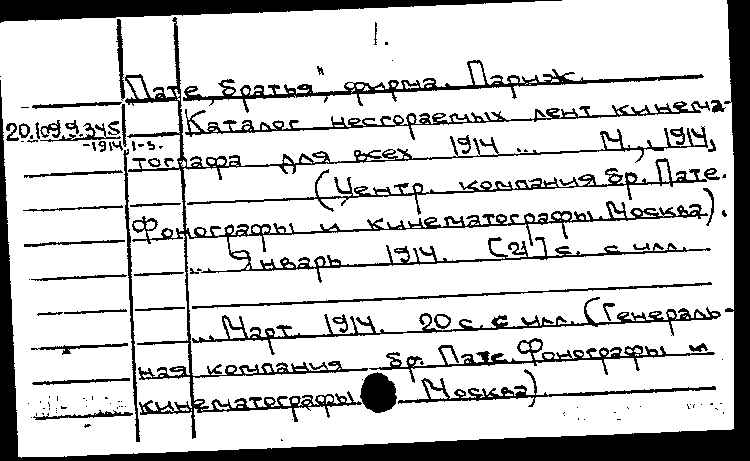 1.
Пате, братья", фирма. Париж.
20.109.9.345 Каталог несгораемых лент кинема-
-1914, 1-3. тографа для всех 1914 ... М., 1914,
(Центр. компания бр. Пате.
Фонографы и кинематографы. Москва).
... Январь 1914. [21] с. с илл.
... Март. 1914. 20 с. с илл. (Генераль-
ная компания бр. Пате. Фонографы и
кинематографы. Москва)